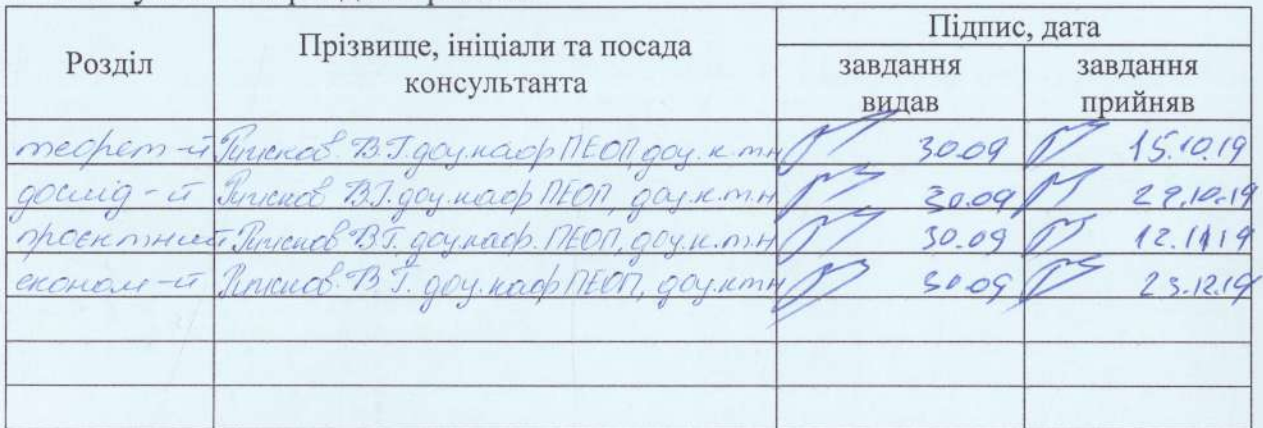 Розділ Прізвище, ініціали та посада консультанта Підпис, дата
завдання видав завдання прийняв
теорет-й В.Г. доц. каф ПЕОП доц. к.т.н 30.09 15.10.19
дослід-й В.Г. доц. каф ПЕОП, доц. к.т.н 30.09 29.10.19
проєктний В.Г. доц. каф. ПЕОП, доц. к.т.н 30.09 12.11.19
економ-й В.Г. доц. каф ПЕОП, доц. к.т.н 30.09 23.12.19